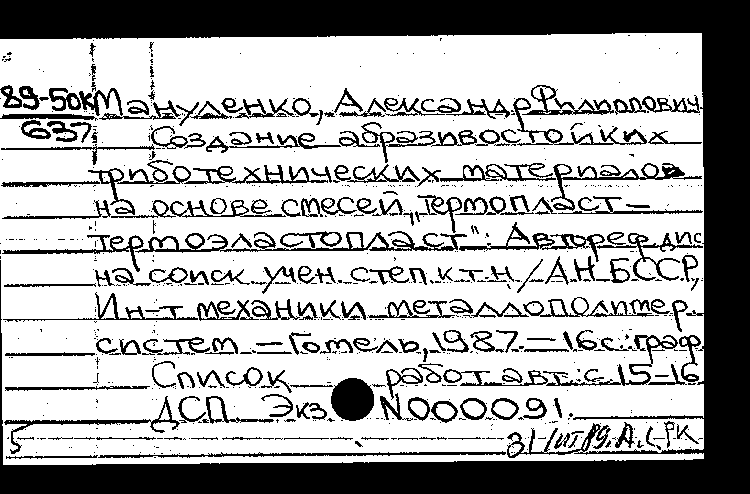 89-50к Мануленко, Александр Филиппович
637 Создание абразивостойких
триботехнических материалов
на основе смесей „термопласт —
термоэластопласт": Автореф. дис
на соиск учен. степ. к.т.н / АН БССР,
Ин-т механики металлополимер.
систем. — Гомель, 1987. — 16 с.: граф
Список работ авт.: с. 15-16
ДСП Экз N000091.
5 31/III 89.